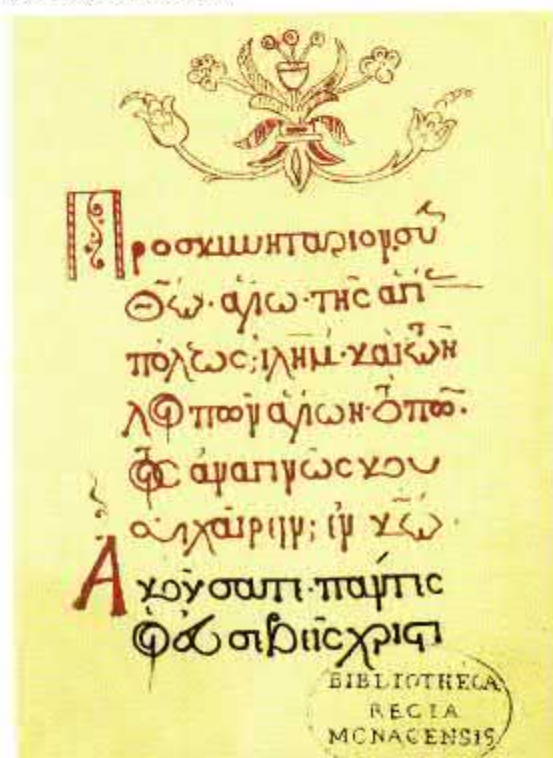 Προσκυνητάριον σὺ
Θῶ· ἁγίω· τῆς ἁγί
πόλεως; ιλημ· καὶ τῶν
λοιπῶν ἁγίων τόπω·
τοῖς ἀναγινώσκου
σι χαίρειν; ἐν κῶ·
Ἀκούσατε· πάντες
εὐσεβεῖς χριστι
BIBLIOTHECA
REGIA
MONACENSIS